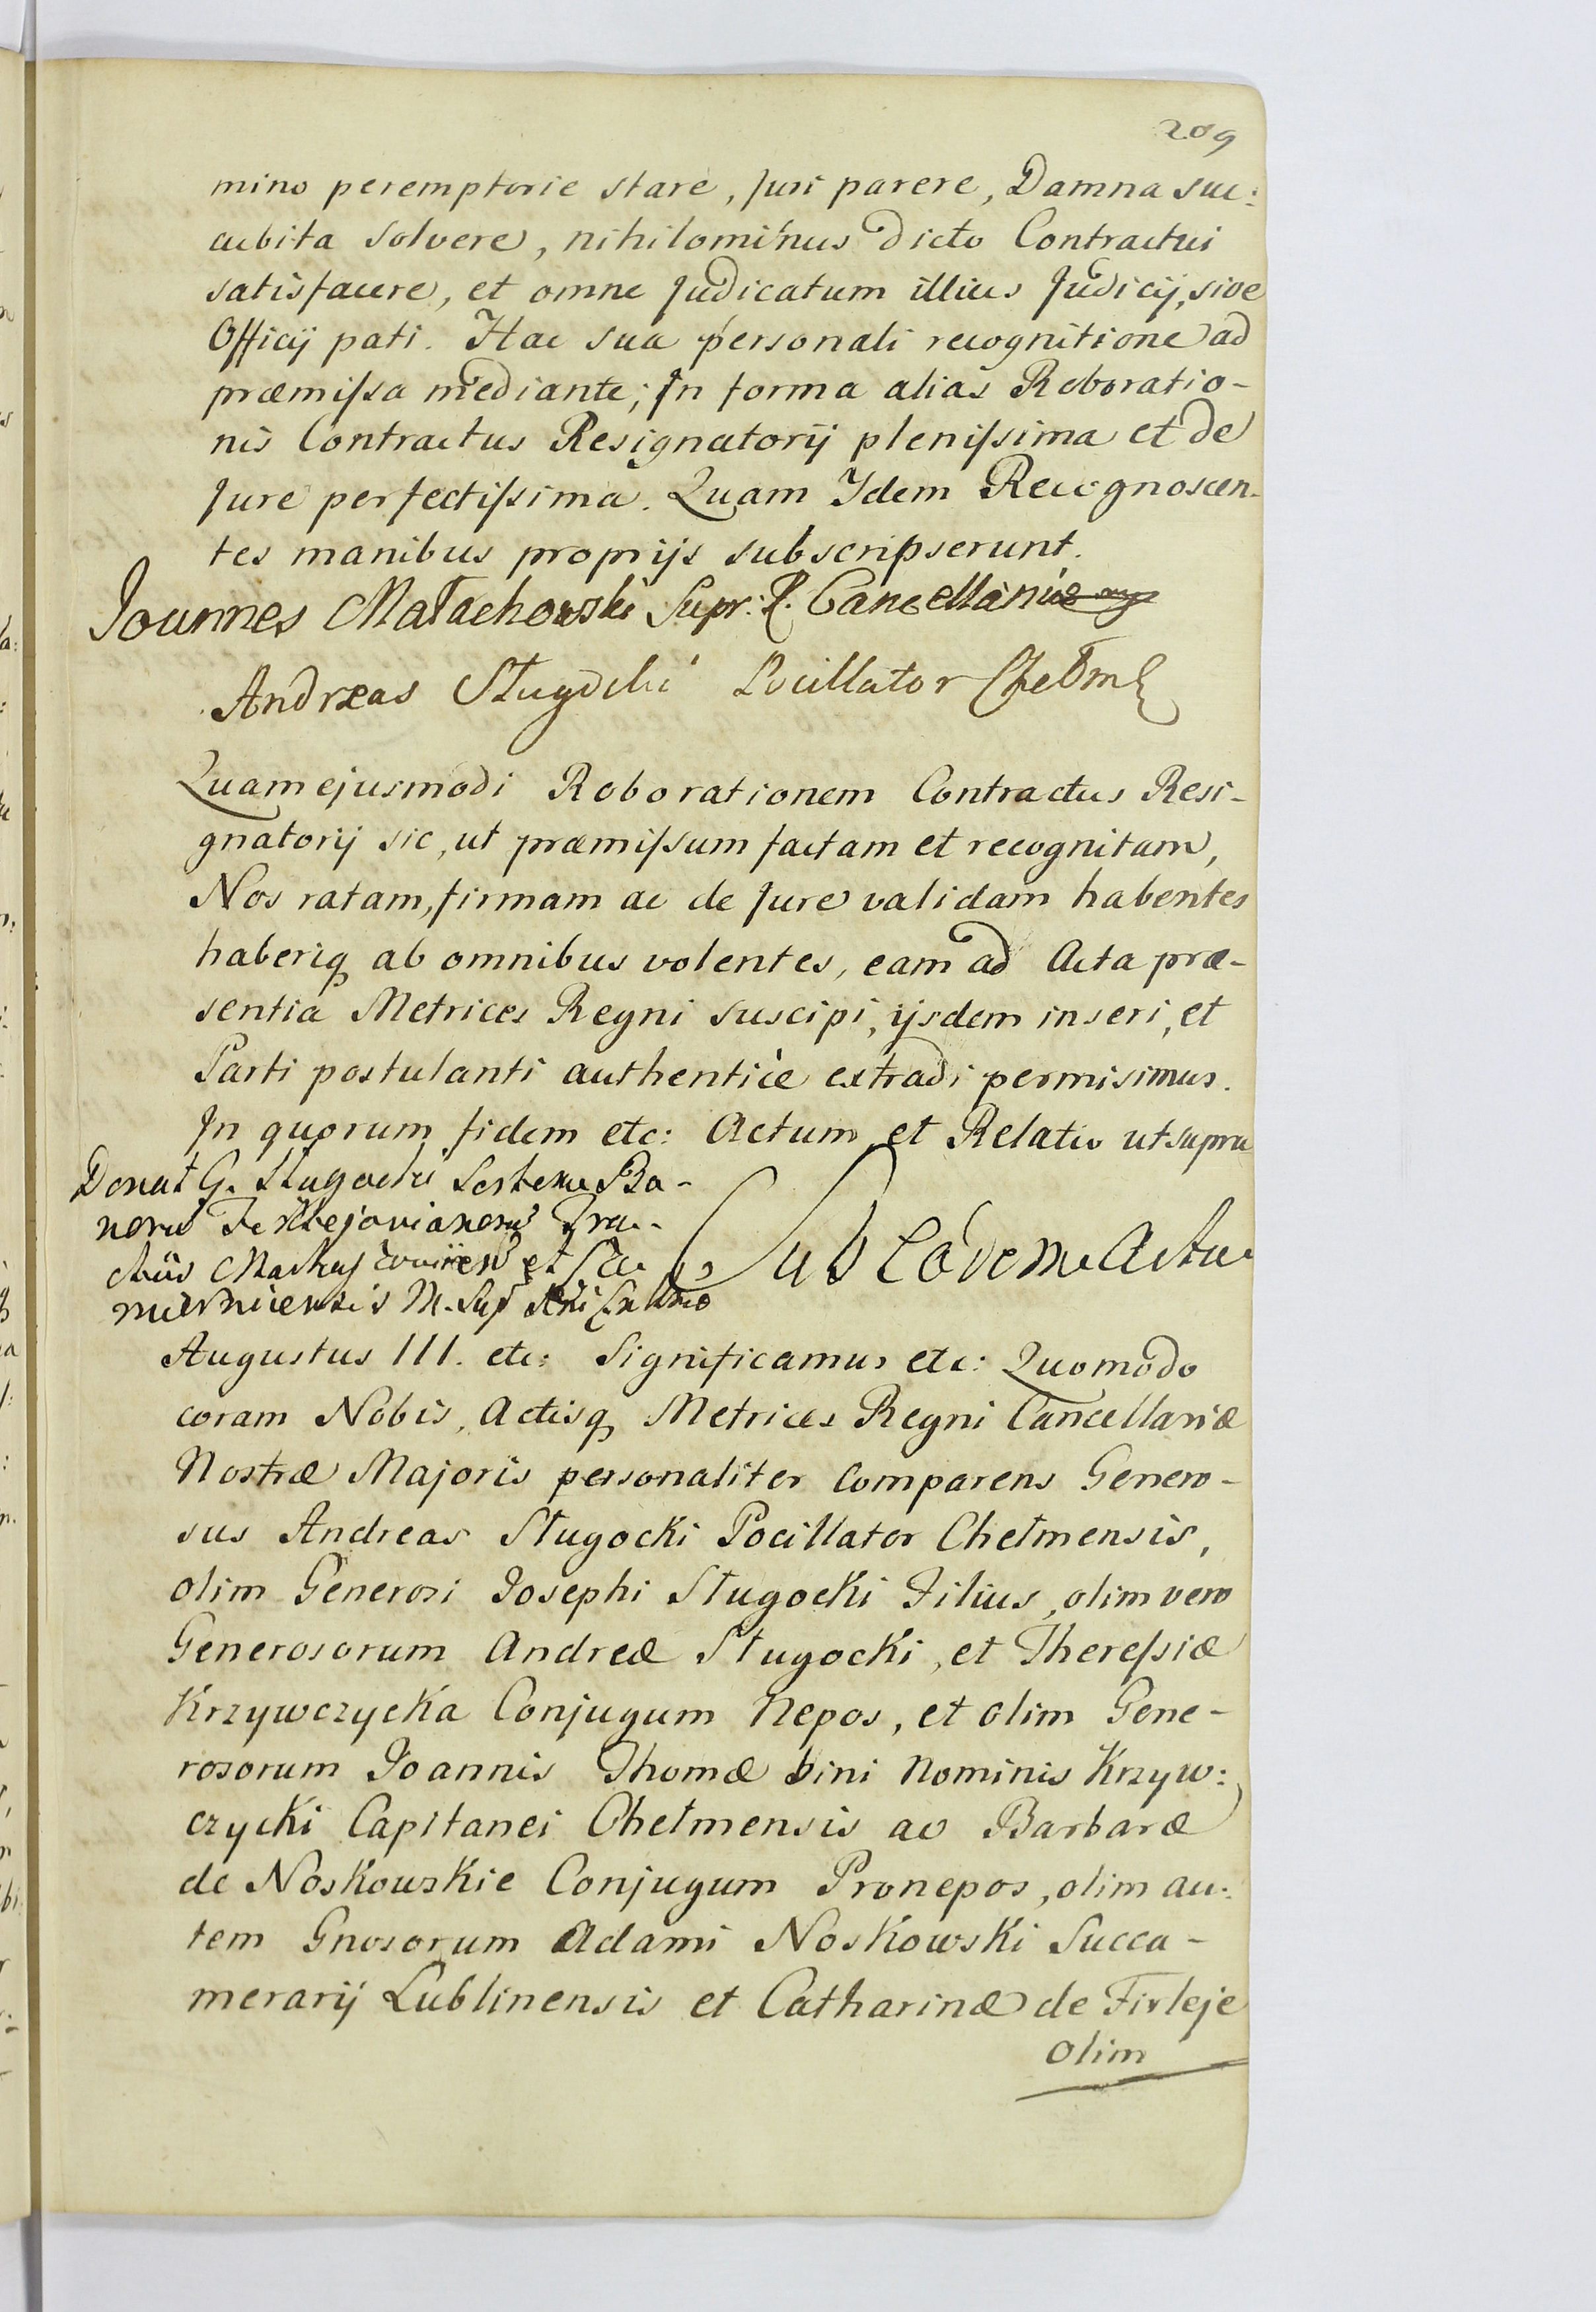 209
mino peremptorie stare, Juri parere, Damna suc:
cubita solvere, nihilominus dicto Contractui
satisfacere, et omne Judicatum illius Judicij, sive
Officij pati. Hac sua personali recognitione ad
præmissa mediante; In forma alias Roboratio-
nis Contractus Resignatorij plenissima et de
Jure perfectissima. Quam Idem Recognoscen-
tes manibus proprijs subscripserunt.
Joannes Małachowski Supr: R. Cancellarius
Andreas Sługocki Pocillator Chełm
Quam ejusmodi Roborationem Contractus Resi-
gnatorij sic, ut præmissum factam et recognitam,
Nos ratam, firmam ac de Jure validam habentes
haberiq ab omnibus volentes, eam ad Acta præ-
sentia Metrices Regni suscipi, ijsdem inseri, et
Parti postulanti authenticè extradi permisimus.
In quorum fidem etc: Actum et Relatio ut supra
Donat G. Sługocki Ba-
norũ
et
M.
Sub Eodem Actu
Augustus III. etc: Significamus etc: Quomodo
coram Nobis, Actisq Metrices Regni Cancellariæ
Nostræ Majoris personaliter comparens Genero-
sus Andreas Sługocki Pocillator Chełmensis,
olim Generosi Josephi Sługocki Filius, olim vero
Generosorum Andreæ Sługocki, et Theressiæ
Krzywczycka Conjugum Nepos, et olim Gene-
rosorum Joannis Thomæ bini Nominis Krzyw:
czycki Capitanei Chełmensis ac Barbaræ
de Noskowskie Conjugum Pronepos, olim au:
tem Gnosorum Adami Noskowski Succa-
merarij Lublinensis et Catharinæ de Firleje
olim